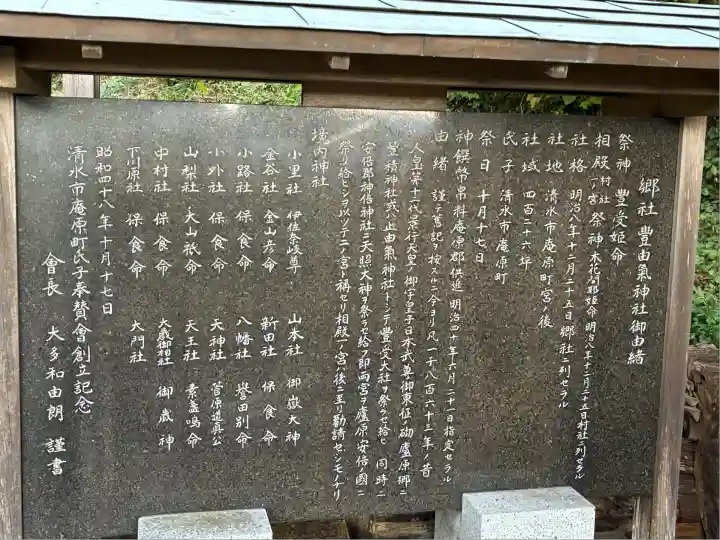 郷社 豊由氣神社御由緒
祭神 豊受姫命
相殿 村社一ノ宮 祭神 木花開耶姫命 明治八年十二月二十五日村社ニ列セラル
社格 明治八年十二月二十五日郷社ニ列セラル
社地 清水市庵原町宮ノ後
社域 四百二十六坪
氏子 清水市庵原町
祭日 十月十七日
神饌幣帛料庵原郡供進 明治四十年六月二十一日指定セラル
由緒 謹テ舊記ヲ按スルニ今ヨリ凡一千八百六十三年ノ昔
人皇第十二代景行天皇ノ御宇皇子日本武尊御東征ノ砌廬原郷ニ
豊積神社或ハ止由氣神社トシテ豊受大社ヲ祭ラセ給ヒ 同時ニ
安倍郡神倍神社ニ天照大神ヲ祭ラセ給フ即両宮ヲ廬原安倍ノ國ニ
祭リ給ヒシヲ以テ二ノ宮ト稱セリ相殿一ノ宮ハ後ニ至リ勧請セシモノナリ
境内神社
小里社 伊佐奈岐尊 山本社 御嶽大神
金谷社 金山彦命 新田社 保食命
小路社 保食命 八幡社 譽田別命
小外社 保食命 天神社 菅原道真公
山梨社 大山祇命 天王社 素盞鳴命
中村社 保食命 大歳御祖社 御歳神
下川原社 保食命 大門社
昭和四十八年十月十七日
清水市庵原町氏子奉賛會創立記念
會長 大多和由朗 謹書